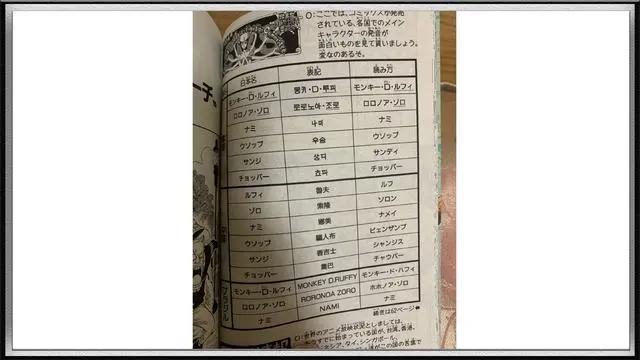 O:ここでは、コミックスが発売
されている、各国でのメイン
キャラクターの発音が
面白いものを見て貰いましょう。
変なのあるぞ。
日本名 表記 読み方
モンキー・D・ルフィ 몽키・D・루피 モンキー・D・ルフィ
ロロノア・ゾロ 로로노아・조로 ロロノア・ゾロ
ナミ 나미 ナミ
ウソップ 우솝 ウソップ
サンジ 상디 サンディ
チョッパー 쵸파 チョッパー
ルフィ 魯夫 ルフ
ゾロ 索隆 ソロン
ナミ 娜美 ナメイ
ウソップ 騙人布 ピェンザンプ
サンジ 香吉士 シャンジス
チョッパー 喬巴 チャウパー
ブラジル
モンキー・D・ルフィ MONKEY D.RUFFY モンキー・ド・ハフィ
ロロノア・ゾロ RORONOA ZORO ホホノア・ゾロ
ナミ NAMI ナミ
続きは62ページ
O:世界のアニメ放映状況としましては、
すでに始まっている国が、台湾、香港、
タイ、シンガポール、